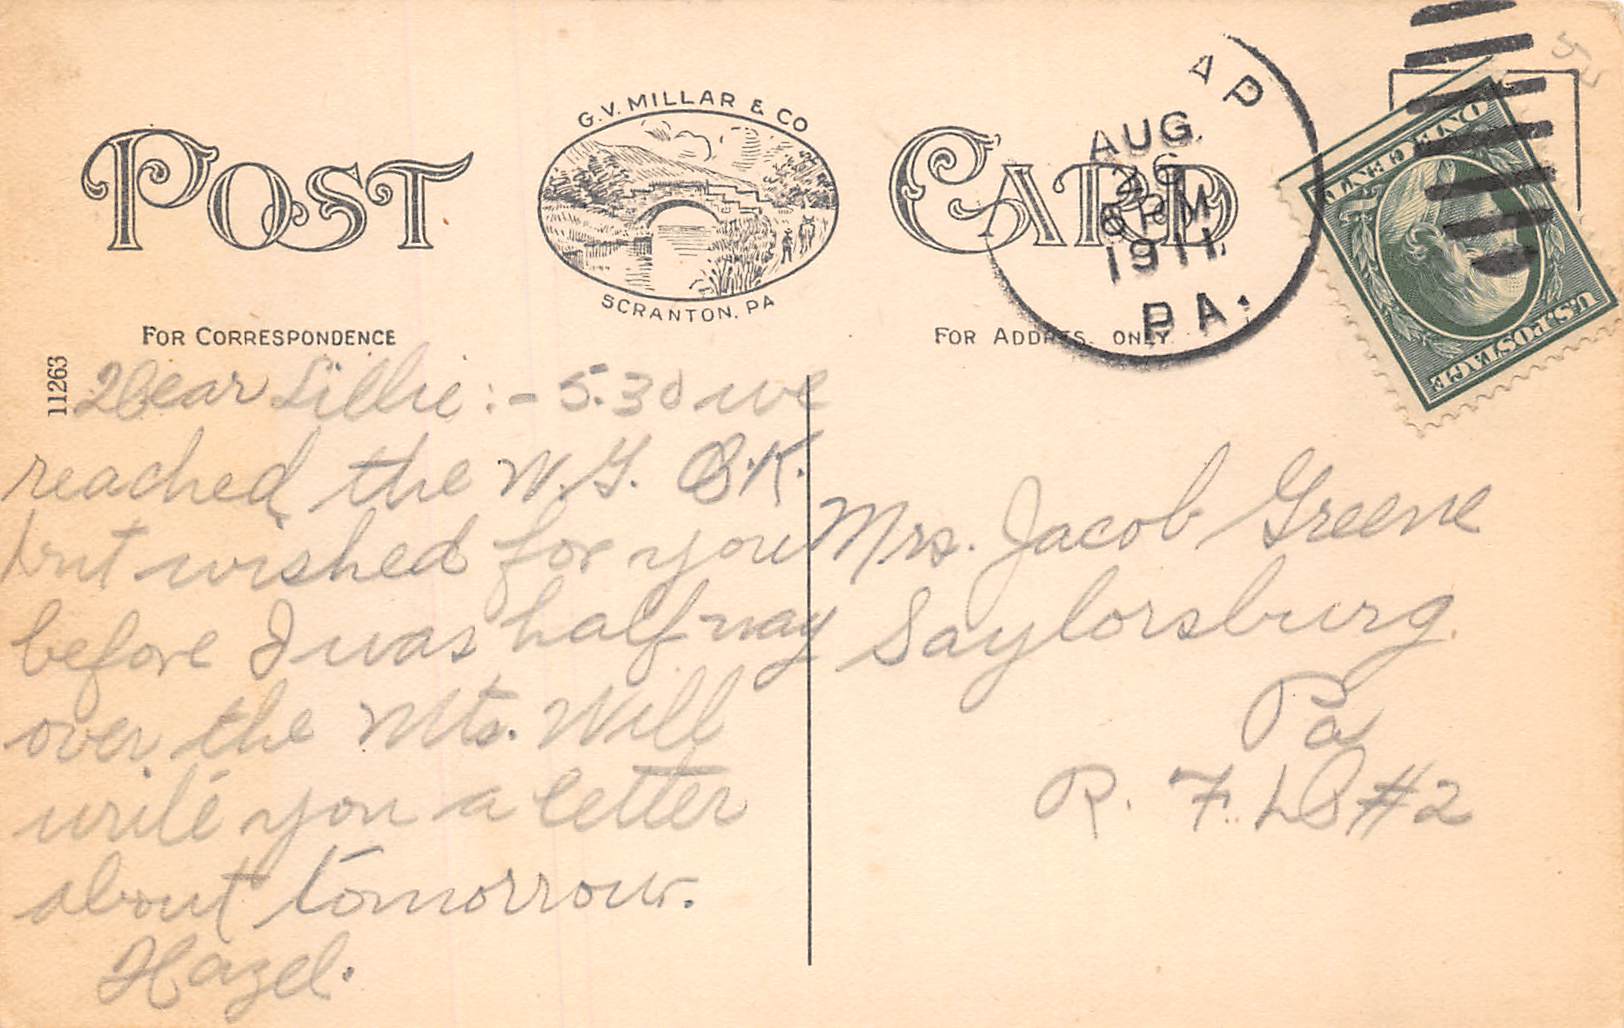 G.V. MILLAR & CO
POST CARD
SCRANTON, PA
FOR CORRESPONDENCE
FOR ADDRESS ONLY
11263
AP
AUG.
6 PM
1911
PA.
ONE CENT
U.S. POSTAGE
Dear Lillie :- 5.30 we
reached the W.G. O.K.
but wished for you
before I was half way
over the Mts. Will
write you a letter
about tomorrow.
Hazel.
Mrs. Jacob Greene
Saylorsburg.
Pa
R. F. D #2